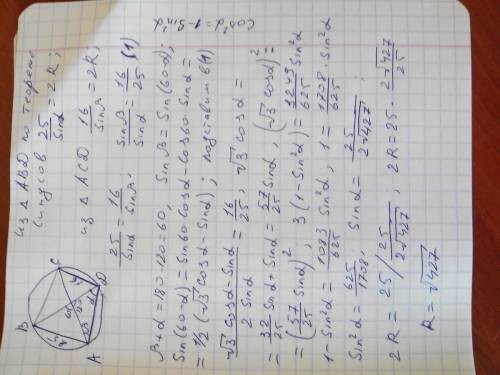 B
C
A
D
из △ ABD по теореме
синусов 25/sinα = 2R;
из △ ACD 16/sinβ = 2R;
25/sinα = 16/sinβ, sinβ/sinα = 16/25 (1)
β+α = 180-120 = 60, sinβ = sin(60-α);
sin(60-α) = sin60·cosα - cos60·sinα =
= 1/2 (√3 cosα - sinα); подставим в (1)
cos²α = 1 - sin²α
(√3 cosα - sinα)/(2 sinα) = 16/25, √3 cosα =
= 32/25 sinα + sinα = 57/25 sinα, (√3 cosα)² =
= (57/25 sinα)², 3(1 - sin²α) = 3249/625 sin²α
1 - sin²α = 1083/625 sin²α, 1 = 1708/625 · sin²α
sin²α = 625/1708, sinα = 25/(2√427);
2R = 25 / 25/(2√427), 2R = 25 · 2√427/25
R = √427